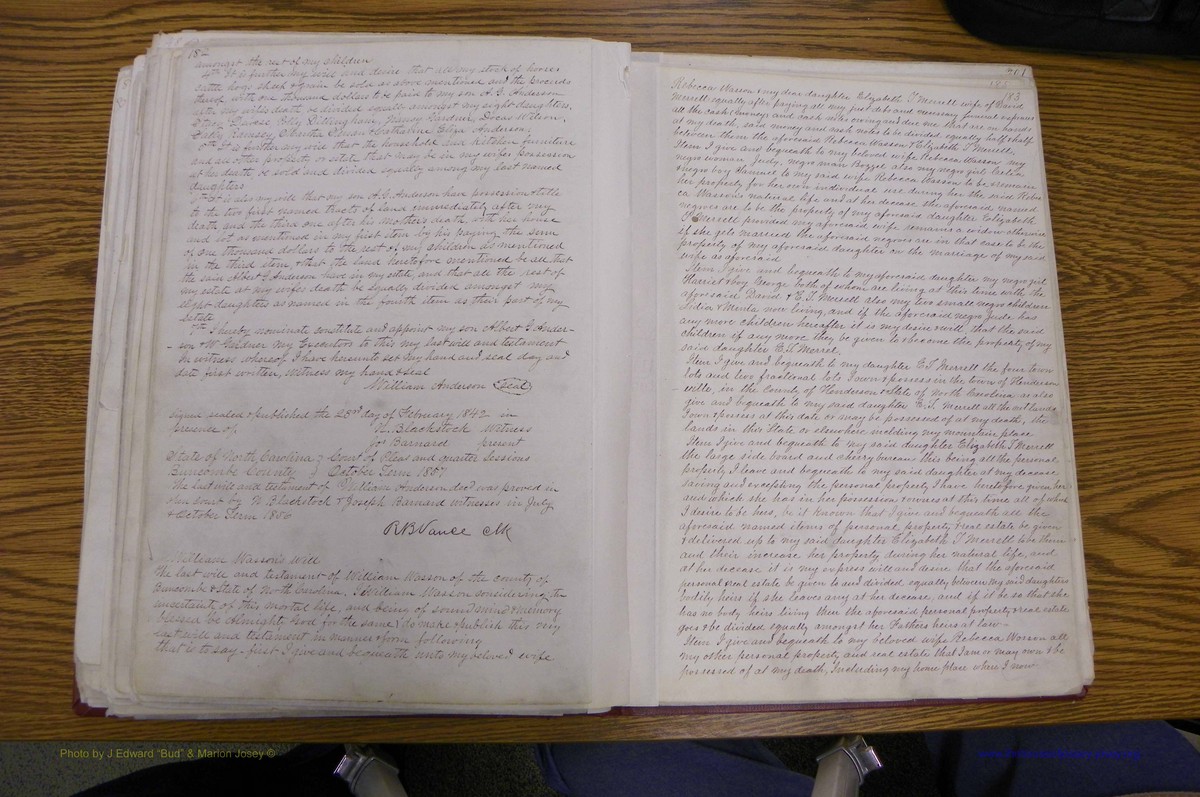 182
amongst the rest of my children
4th It is further my will and desire that all my stock of horses
cattle hogs sheep & grain be sold as above mentioned and the proceeds
thereof with one thousand dollars to be paid to my son A. G. Anderson
after my wifes death be divided equally amongst my eight daughters,
Elizy Brittingham, Gardner, Dorcas Wilson,
Ramsey, & Catharine Eliza Anderson,
5th It is further my will that the household and kitchen furniture
and all other property or estate that may be in my wifes possession
at her death be sold and divided equally among my last named
daughters
6th It is also my will that my son A. G. Anderson have possession & title
to the two first named tracts of land immediately after my
death and the third one after his mother's death, with her house
and lot as mentioned in my first item by his paying the sum
of one thousand dollars to the rest of my children as mentioned
in the third item, & that the land heretofore mentioned be all that
the said Albert G Anderson have in my estate, and that all the rest of
my estate at my wifes death be equally divided amongst my
eight daughters as named in the fourth item as their part of my
estate
7th I hereby nominate constitute and appoint my son Albert G Ander-
- son & W. Gardner my Executors to this my last will and testament
In witness whereof I have hereunto set my hand and seal day and
date first written, witness my hand & seal
William Anderson (seal)
signed sealed & published the 28nd day of February 1842 in
presence of N. Blackstock Witness
Jos Barnard present
State of North Carolina } Court of Pleas and quarter Sessions
Buncombe County } October Term 1857
The last will and testament of William Anderson decd was proved in
open court by N Blackstock & Joseph Barnard witnesses in July
& October Term 1856
R B Vance clk
William Wasson's Will
The last will and testament of William Wasson of the county of
Buncombe & State of North Carolina, I William Wasson considering the
uncertainty of this mortal life, and being of sound mind & memory
blessed be Almighty God for the same, do make & publish this very
last will and testament in manner & form following
that is to say - first I give and bequeath unto my beloved wife
201
183
Rebecca Wasson & my dear daughter Elizabeth T Merrell wife of David
Merrell equally after paying all my just debts and necessary funeral expenses
all the cash & moneys and cash notes owing and due me that are on hands
at my death, said money and cash notes to be divided equally half & half
between them the aforesaid Rebecca Wasson & Elizabeth T Merrell,
Item I give and bequeath to my beloved wife Rebecca Wasson my
negro woman Judy, negro man also my negro girl
& negro boy Hamuel to my said wife Rebecca Wasson to be & remain
her property for her own individual use during her the said Rebec
ca Wasson's natural life and at her decease the aforesaid named
negroes are to be the property of my aforesaid daughter Elizabeth
T Merrell provided my aforesaid wife remains a widow otherwise
if she gets married the aforesaid negroes are in that case to be the
property of my aforesaid daughter on the marriage of my said
wife as aforesaid
Item I give and bequeath to my aforesaid daughter my negro girl
Harriet & boy George both of whom are living at this time with the
aforesaid David & E. T. Merrell also my two small negro children
Lidia & Merida now living, and if the aforesaid negro Jude has
any more children hereafter it is my desire & will that the said
children if any more they be given to & become the property of my
said daughter E. T. Merrel,
Item I give and bequeath to my daughter E T Merrell the four town
lots and two fractional lots I own & possess in the town of Henderson
ville, in the County of Henderson & State of North Carolina as also
give and bequeath to my said daughter E. T. Merrell all the out lands
I own & possess at this date or may be possessed of at my death, the
lands in this State or elsewhere including my mountain place
Item I give and bequeath to my said daughter Elizabeth T Merrell
the large side board and cherry bureau this being all the personal
property I leave and bequeath to my said daughter at my decease
saving and excepting the personal property I have heretofore given her
and which she has in her possession & owns at this time all of which
I desire to be hers, be it known that I give and bequeath all the
aforesaid named items of personal property & real estate be given
& delivered up to my said daughter Elizabeth T Merrell to be them
and their increase her property during her natural life, and
at her decease it is my express will and desire that the aforesaid
personal & real estate be given to and divided equally between my said daughters
bodily heirs if she leaves any at her decease, and if it be so that she
has no body heirs living then the aforesaid personal property & real estate
goes & be divided equally amongst her Fathers heirs at law -
Item I give and bequeath to my beloved wife Rebecca Wasson all
my other personal property and real estate that I am or may own & be
possessed of at my death, including my home place where I now
Photo by J Edward "Bud" & Marion Josey ©